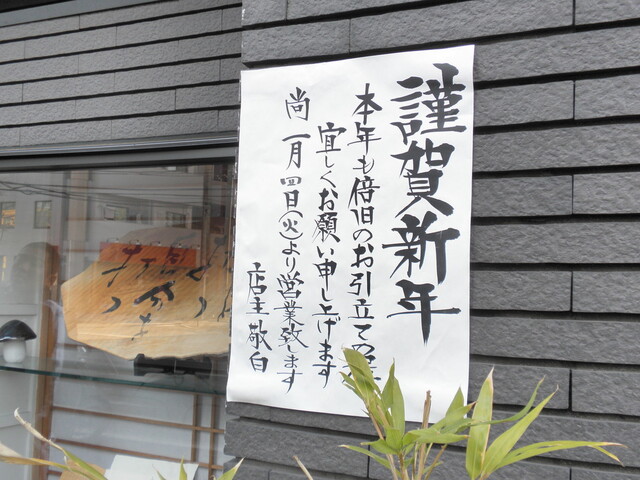 謹賀新年
本年も倍旧のお引立ての
宜しくお願い申し上げます
尚 一月四日(火)より営業致します
店主敬白